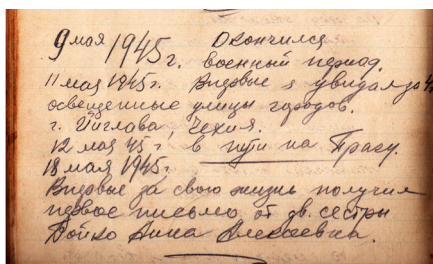 9 мая 1945 г. Окончился
военный период.
11 мая 1945 г. Впервые я увидал за 4
освещенные улицы городов.
г. Йиглова, Чехия.
12 мая 45 г. в пути на Прагу.
18 мая 1945 г.
Впервые за свою жизнь получил
первое письмо от дв. сестры
Бойко Анна Алексеевна.